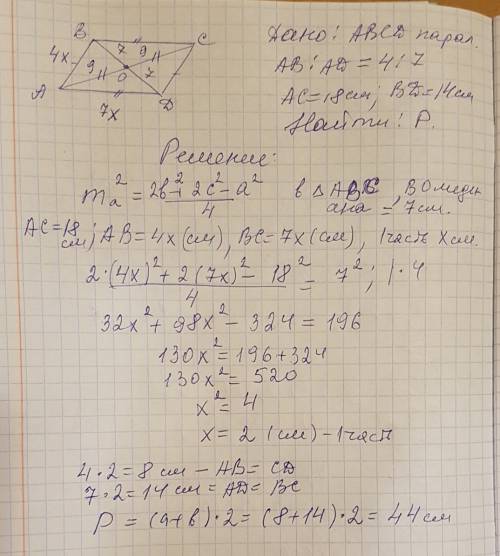 B
C
4x
7
9
9
O
7
A
D
7x
Дано: ABCD парал.
AB : AD = 4 : 7
AC = 18 см; BD = 14 см
Найти: P.
Решение:
mₐ² = (2b² + 2c² - a²) / 4
в △ ABC, BO медиана = 7 см.
AC = 18 см; AB = 4x (см), BC = 7x (см), 1 часть x см.
(2·(4x)² + 2(7x)² - 18²) / 4 = 7²; | · 4
32x² + 98x² - 324 = 196
130x² = 196 + 324
130x² = 520
x² = 4
x = 2 (см) - 1 часть
4 · 2 = 8 см - AB = CD
7 · 2 = 14 см = AD = BC
P = (a + b) · 2 = (8 + 14) · 2 = 44 см